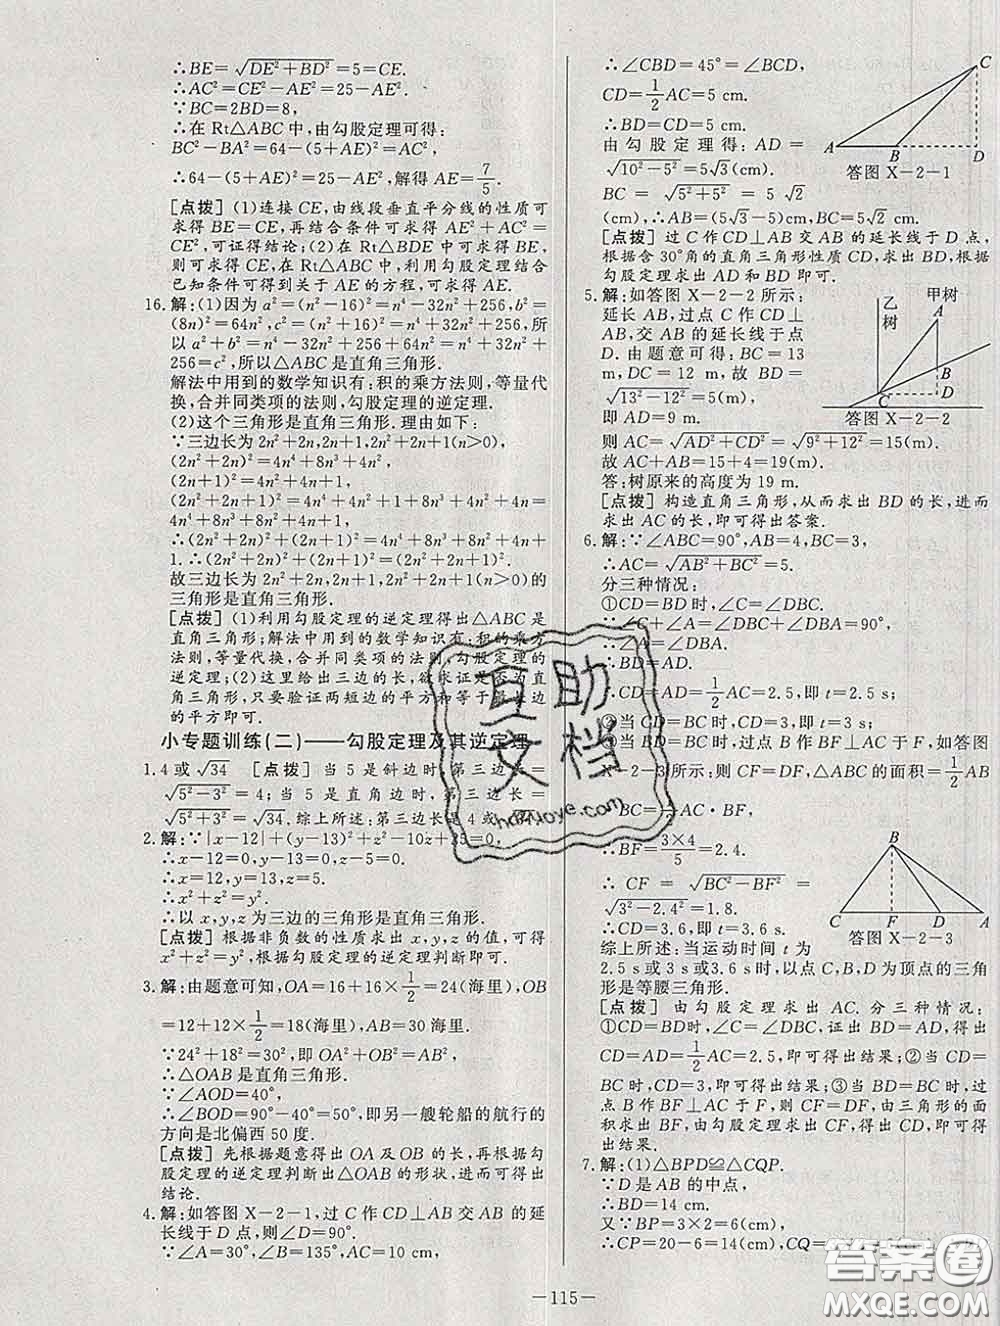 ∴BE=√(DE²+BD²)=5=CE.
∴AC²=CE²-AE²=25-AE².
∵BC=2BD=8,
∴在 Rt△ABC 中,由勾股定理可得:
BC²-BA²=64-(5+AE)²=AC²,
∴64-(5+AE)²=25-AE²,解得 AE=7/5.
[点拨](1)连接 CE,由线段垂直平分线的性质可
求得 BE=CE,再结合条件可求得 AE²+AC²=
CE²,可证得结论;(2)在 Rt△BDE 中可求得 BE,
则可求得 CE,在 Rt△ABC 中,利用勾股定理结合
已知条件可得到关于 AE 的方程,可求得 AE.
16.解:(1)因为 a²=(n²-16)²=n⁴-32n²+256,b²=
(8n)²=64n²,c²=(n²+16)²=n⁴+32n²+256,所
以 a²+b²=n⁴-32n²+256+64n²=n⁴+32n²+
256=c²,所以△ABC 是直角三角形.
解法中用到的数学知识有:积的乘方法则,等量代
换,合并同类项的法则,勾股定理的逆定理.
(2)这个三角形是直角三角形.理由如下:
∵三边长为 2n²+2n,2n+1,2n²+2n+1(n>0),
(2n²+2n)²=4n⁴+8n³+4n²,
(2n+1)²=4n²+4n+1,
(2n²+2n+1)²=4n⁴+4n²+1+8n³+4n²+4n=
4n⁴+8n³+8n²+4n+1,
∴(2n²+2n)²+(2n+1)²=4n⁴+8n³+8n²+4n+
1.∴(2n²+2n)²+(2n+1)²=(2n²+2n+1)².
故三边长为 2n²+2n,2n+1,2n²+2n+1(n>0)的
三角形是直角三角形.
[点拨](1)利用勾股定理的逆定理得出△ABC 是
直角三角形;解法中用到的数学知识有:积的乘方
法则,等量代换,合并同类项的法则,勾股定理的
逆定理;(2)这里给出三边的长,欲求证是否为直
角三角形,只要验证两短边的平方和等于最长边
的平方即可.
小专题训练(二)——勾股定理及其逆定理
1.4 或√34 [点拨]当 5 是斜边时,第三边长=
√(5²-3²)=4;当 5 是直角边时,第三边长=
√(5²+3²)=√34.综上所述:第三边长是 4 或√34.
2.解:∵|x-12|+(y-13)²+z²-10z+25=0,
∴x-12=0,y-13=0,z-5=0.
∴x=12,y=13,z=5.
∴x²+z²=y².
∴以 x,y,z 为三边的三角形是直角三角形.
[点拨]根据非负数的性质求出 x,y,z 的值,可得
x²+z²=y²,根据勾股定理的逆定理判断即可.
3.解:由题意可知,OA=16+16×1/2=24(海里),OB
=12+12×1/2=18(海里),AB=30 海里.
∵24²+18²=30²,即 OA²+OB²=AB²,
∴△OAB 是直角三角形.
∵∠AOD=40°,
∴∠BOD=90°-40°=50°,即另一艘轮船的航行的
方向是北偏西 50 度.
[点拨]先根据题意得出 OA 及 OB 的长,再根据勾
股定理的逆定理判断出△OAB 的形状,进而可得出
结论.
4.解:如答图 X-2-1,过 C 作 CD⊥AB 交 AB 的延
长线于 D 点,则∠D=90°.
∵∠A=30°,∠B=135°,AC=10 cm,
∴∠CBD=45°=∠BCD,
CD=1/2AC=5 cm.
∴BD=CD=5 cm.
由勾股定理得:AD=
√(10²-5²)=5√3(cm).
BC=√(5²+5²)=5√2
(cm),∴AB=(5√3-5)cm,BC=5√2 cm.
A B D C
答图 X-2-1
[点拨]过 C 作 CD⊥AB 交 AB 的延长线于 D 点,
根据含 30°角的直角三角形性质 CD,求出 BD,根据
勾股定理求出 AD 和 BD 即可.
5.解:如答图 X-2-2 所示:
延长 AB,过点 C 作 CD⊥
AB,交 AB 的延长线于点
D.由题意可得:BC=13
m,DC=12 m,故 BD=
√(13²-12²)=5(m),
即 AD=9 m.
乙树 甲树 A B C D
答图 X-2-2
则 AC=√(AD²+CD²)=√(9²+12²)=15(m).
故 AC+AB=15+4=19(m).
答:树原来的高度为 19 m.
[点拨]构造直角三角形,从而求出 BD 的长,进而
求出 AC 的长,即可得出答案.
6.解:∵∠ABC=90°,AB=4,BC=3,
∴AC=√(AB²+BC²)=5.
分三种情况:
①CD=BD 时,∠C=∠DBC.
∵∠C+∠A=∠DBC+∠DBA=90°,
∴∠A=∠DBA.
∴BD=AD.
∴CD=AD=1/2AC=2.5,即 t=2.5 s;
②当 CD=BC 时,CD=3,即 t=3 s;
③当 BD=BC 时,过点 B 作 BF⊥AC 于 F,如答图
X-2-3所示:则 CF=DF,△ABC 的面积=1/2AB
·BC=1/2AC·BF,
∴BF=3×4/5=2.4.
∴CF=√(BC²-BF²)=
√(3²-2.4²)=1.8.
∴CD=3.6,即 t=3.6 s.
B C F D A
答图 X-2-3
综上所述:当运动时间 t 为
2.5 s或3 s或3.6 s时,以点 C,B,D 为顶点的三角
形是等腰三角形.
[点拨]由勾股定理求出 AC.分三种情况:
①CD=BD 时,∠C=∠DBC,证出 BD=AD,得出
CD=AD=1/2AC=2.5,即可得出结果;②当 CD=
BC 时,CD=3,即可得出结果;③当 BD=BC 时,过
点 B 作 BF⊥AC 于 F,则 CF=DF,由三角形的面
积求出 BF,由勾股定理求出 CF,得出 CD,即可得
出结果.
7.解:(1)△BPD≌△CQP.
∵D 是 AB 的中点,
∴BD=14 cm.
又∵BP=3×2=6(cm),
∴CP=20-6=14(cm),CQ=
—115—
互助文档
hdzuoye.com
答案圈
MXQE.COM